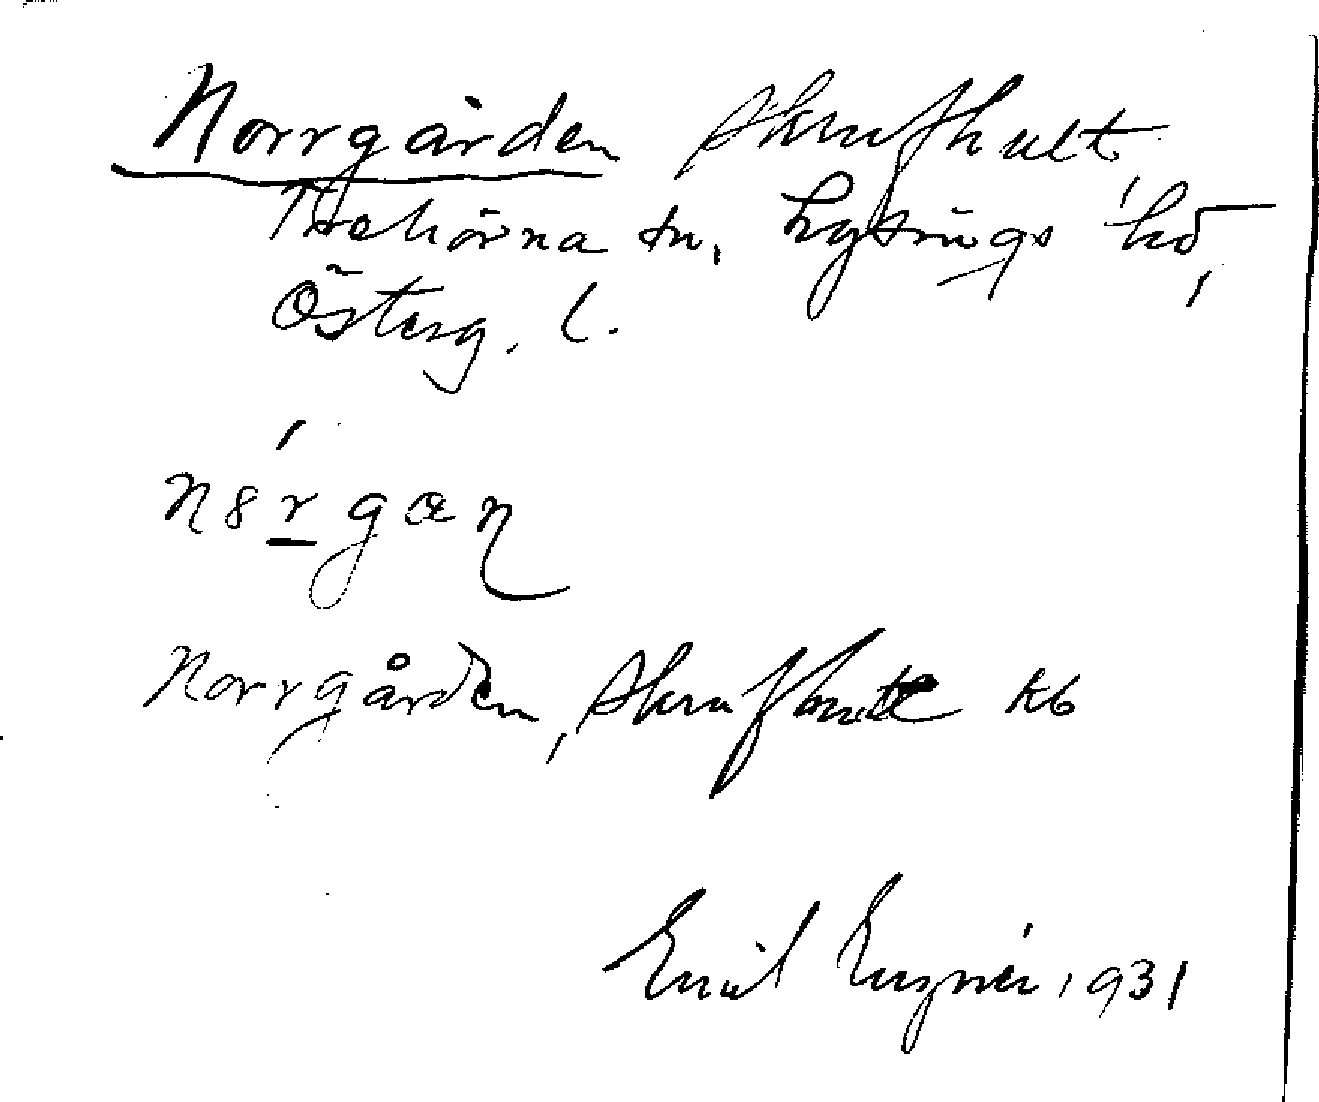 Norrgården Skrufhult
Trehörna sn, Lysings hd,
Österg. l.
n8rgæn
Norrgården, Skrufhult kb
Emil 1931